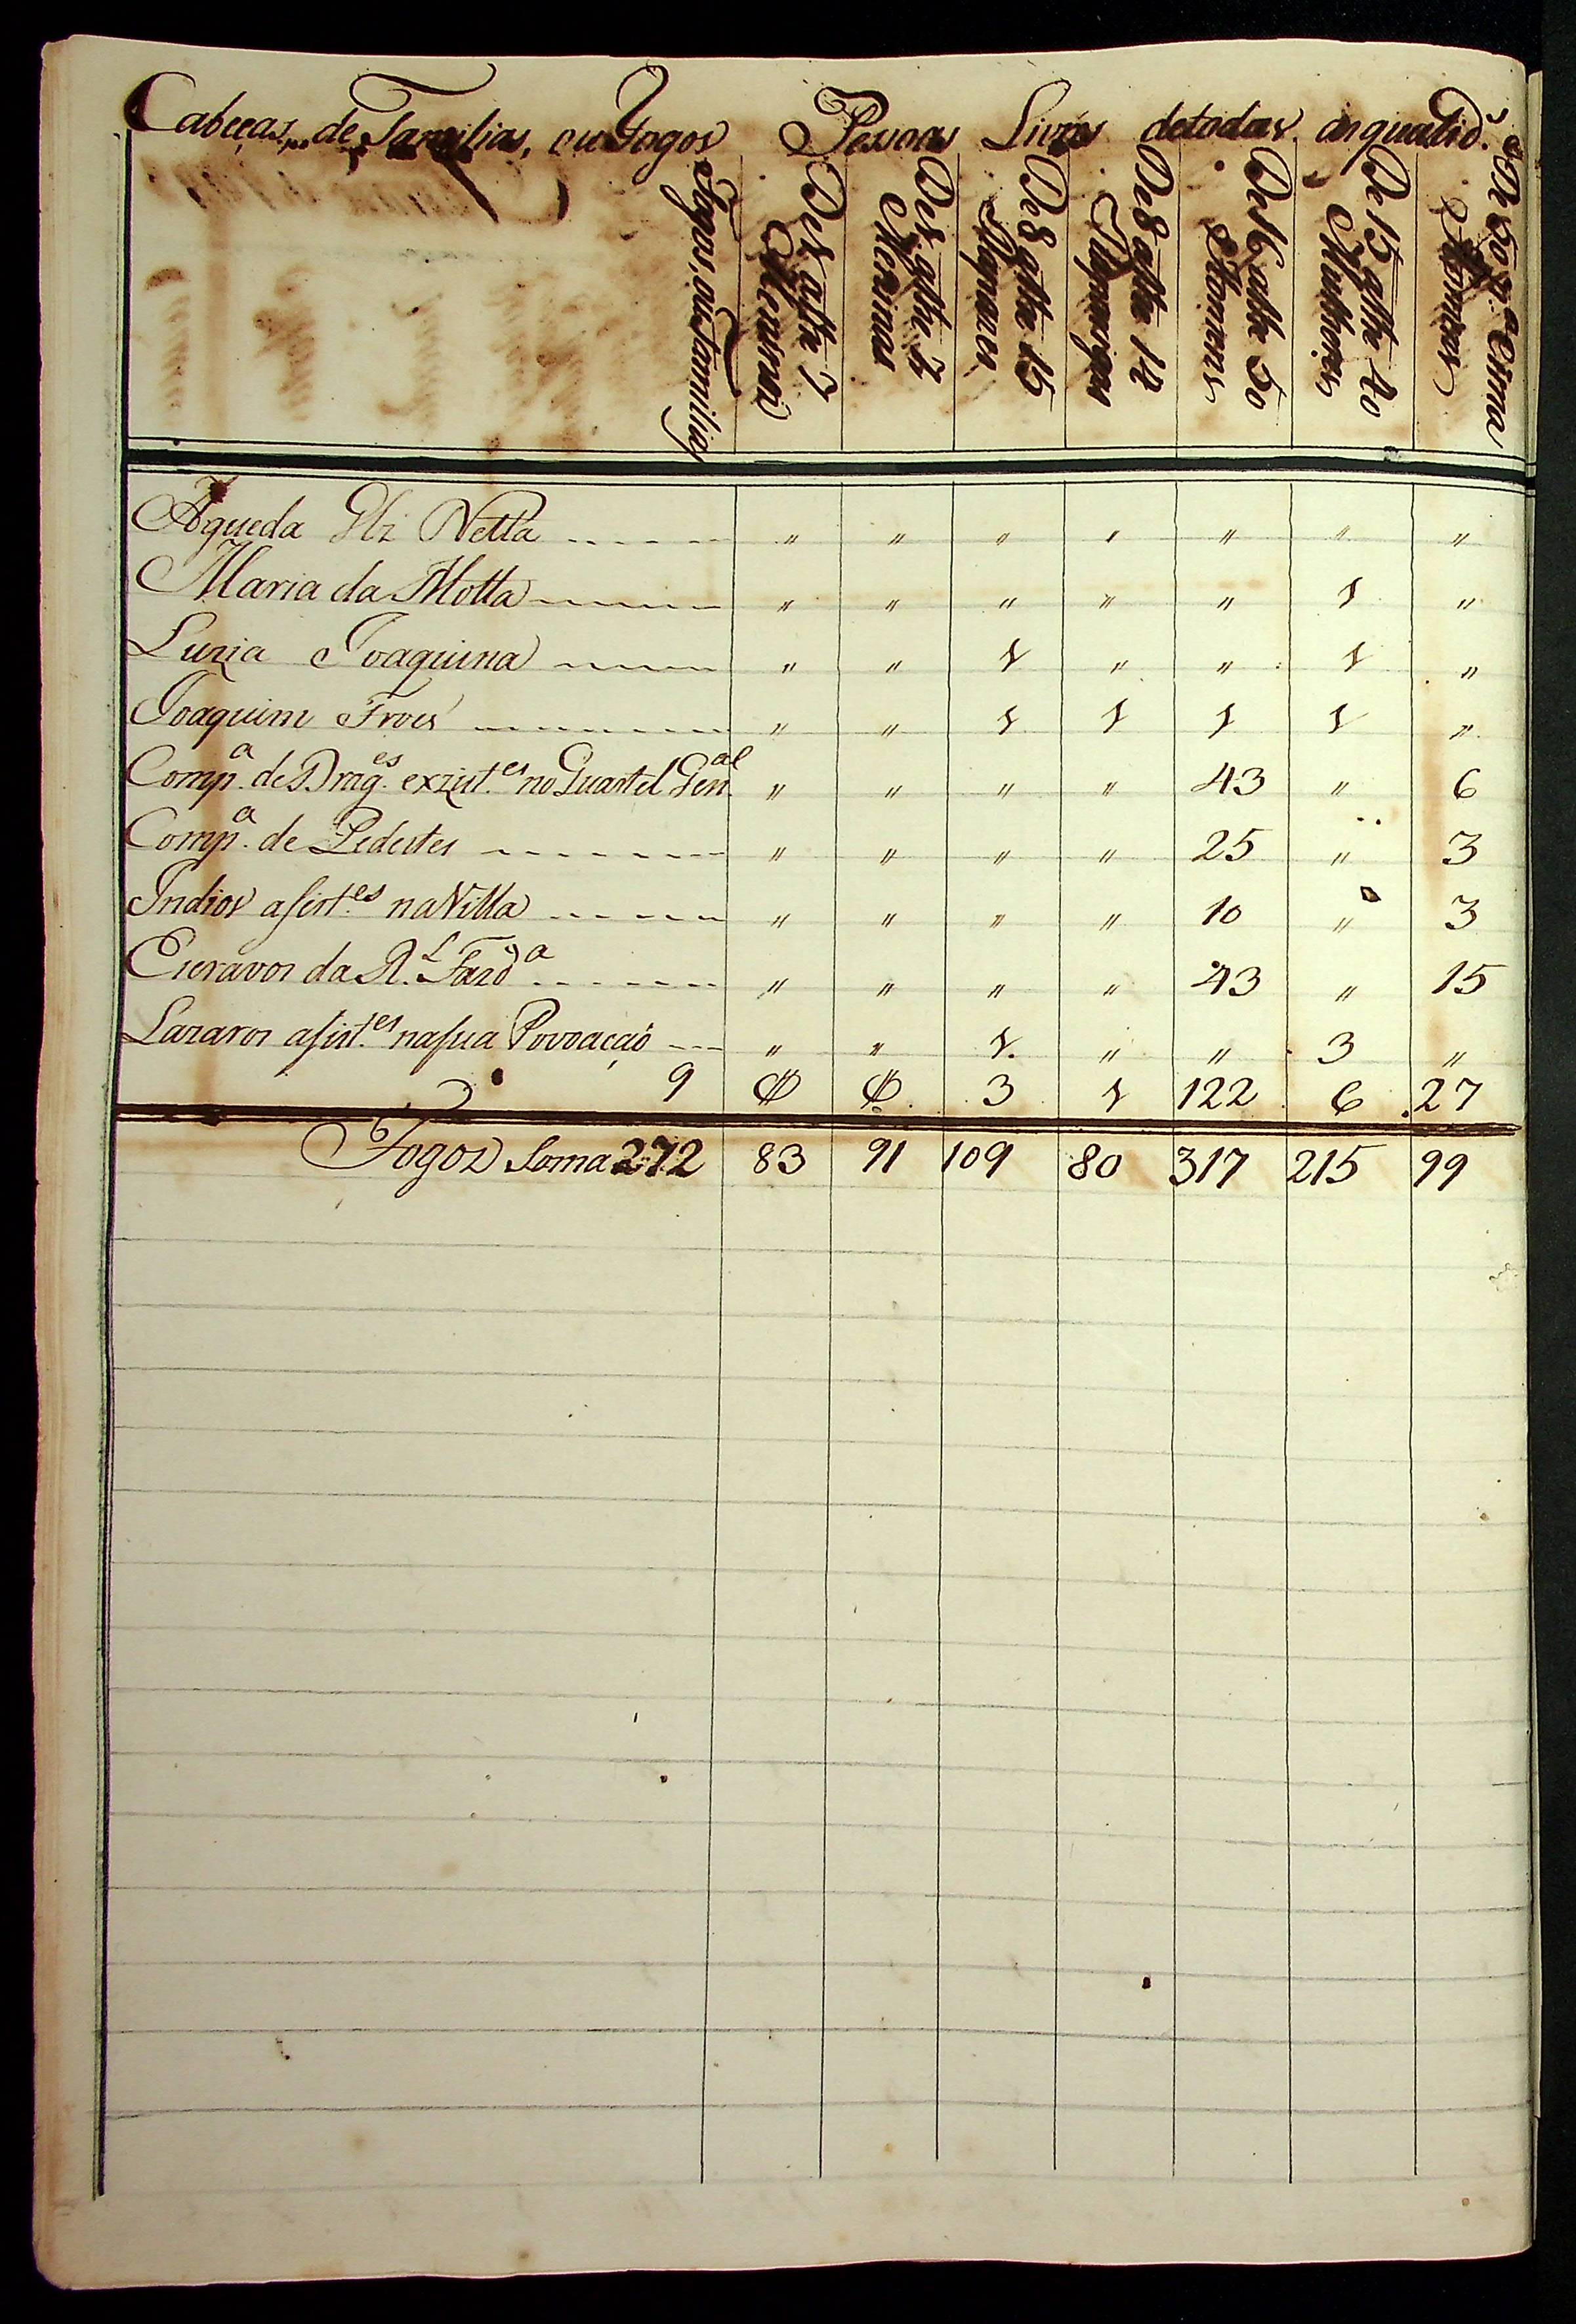 Cabeças de Familias, ou Fogos Pessoas Livres de todas as qualid.es
Fogos, ou Familias
De 1 athe 7 Meninos
De 1 athe 7 Meninas
De 8 athe 15 Rapazes
De 8 athe 14 Raparigas
De 16 athe 50 Homens
De 15 athe 40 Mulheres
De 50 p.a Cima Homens
Agueda Glz Netta " " " " " " "
Maria da Motta " " " " " 1 "
Luzia Joaquina " " 1 " " 1 "
Joaquim Froes " " 1 1 1 1 "
Comp.a de Drag.es exzist.es no Quartel Gen.al " " " " 43 " 6
Comp.a de Pedestes " " " " 25 " 3
Indios asist.es na Villa " " " " 10 " 3
Escravos da R.l Fazd.a " " " " 43 " 15
Lazaros asist.es na sua Povoação " " 1 " " 3 "
9 0 0 3 1 122 6 27
Fogos Soma 272 83 91 109 80 317 215 99